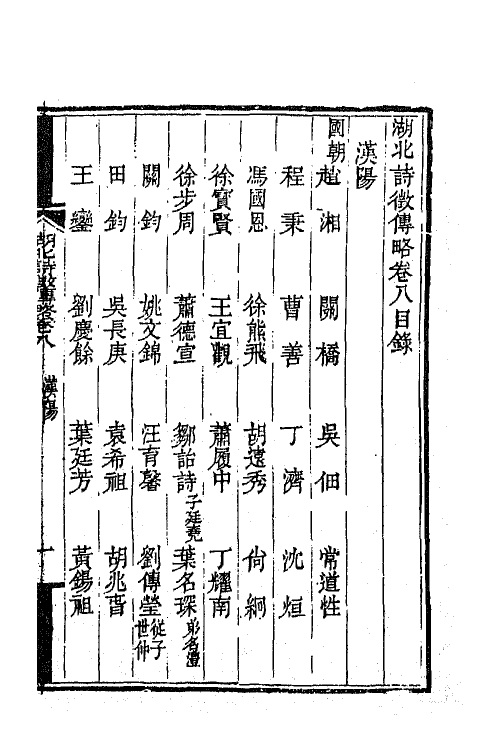 湖北詩徵傳略卷八目錄
漢陽
國朝趙湘 關橋 吳佃 常道性
程秉 曹善 丁濟 沈烜
馮國恩 徐熊飛 胡遠秀 尙絅
徐寶賢 王宜觀 蕭履中 丁耀南
徐步周 蕭德宣 鄒詒詩子廷堯 葉名琛弟名灃
關鈞 姚文錦 汪育馨 劉傳瑩從子世仲
田鈞 吳長庚 袁希祖 胡兆春
王鑾 劉慶餘 葉廷芳 黃錫祖
湖北詩徵傳略卷八 漢陽 一